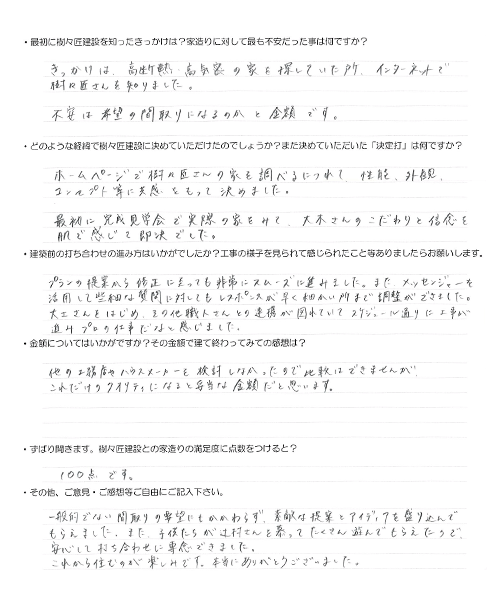 ・最初に樹々匠建設を知ったきっかけは？家造りに対して最も不安だった事は何ですか？
きっかけは、高断熱・高気密の家を探していた所、インターネットで
樹々匠さんを知りました。
不安は希望の間取りになるのかと金額です。
・どのような経緯で樹々匠建設に決めていただけたのでしょうか？また決めていただいた「決定打」は何ですか？
ホームページで樹々匠さんの家を調べるにつれて、性能、外観、
コンセプト等に共感をもって決めました。
最初に完成見学会で実際の家をみて、大木さんのこだわりと信念を
肌で感じて即決でした。
・建築前の打ち合わせの進み方はいかがでしたか？工事の様子を見られて感じられたこと等ありましたらお願いします。
プランの提案から修正にいたっても非常にスムーズに進みました。また、メッセンジャーを
活用して些細な質問に対してもレスポンスが早く細かい所まで調整ができました。
大工さんをはじめ、その他職人さんとの連携が図れていてスケジュール通りに工事が
進みプロの仕事だなと感じました。
・金額についてはいかがですか？その金額で建て終わってみての感想は？
他の工務店やハウスメーカーを検討しなかったので比較はできませんが、
これだけのクオリティになると妥当な金額だと思います。
・ずばり聞きます。樹々匠建設との家造りの満足度に点数をつけると？
100点です。
・その他、ご意見・ご感想等ご自由にご記入下さい。
一般的でない間取りの要望にもかかわらず、素敵な提案とアイディアを盛り込んで
もらえました。また、子供たちが辻村さんを慕ってたくさん遊んでもらえたので、
安心して打ち合わせに専念できました。
これから住むのが楽しみです。本当にありがとうございました。